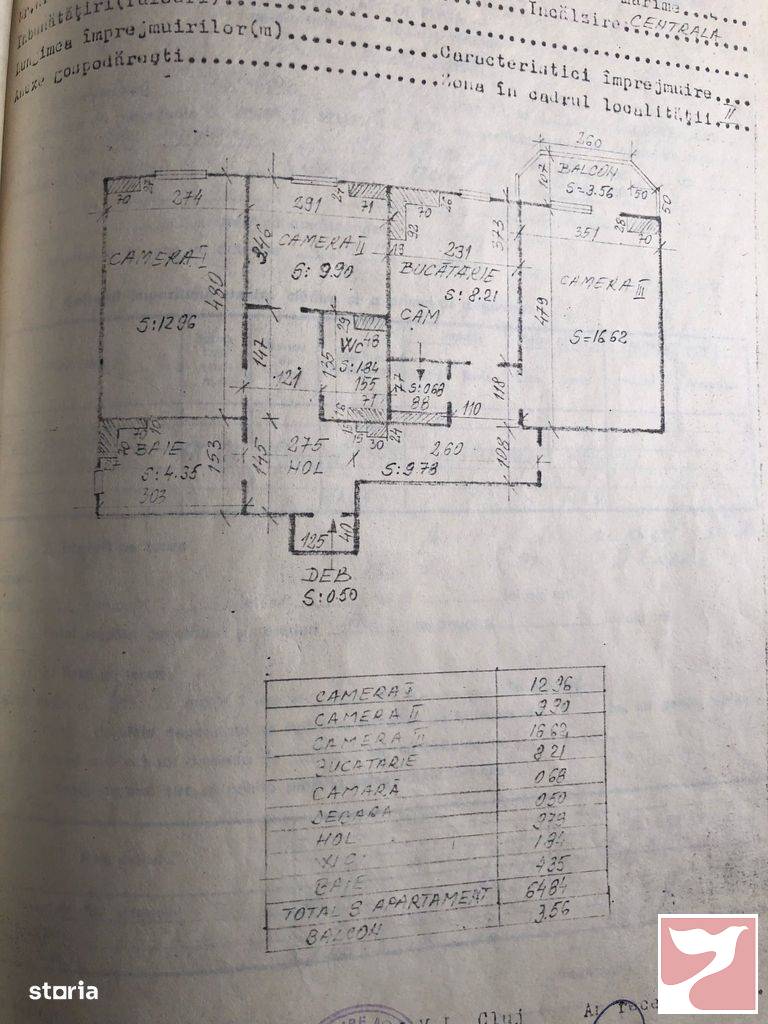 mărime....
Îmbunătățiri(racduri)......Încălzire CENTRALA
Lungimea împrejmuirilor(m)......Caracteristici împrejmuire....
Anexe Gospodărești......Zona în cadrul localității II....
260
107
BALCON
S=3.56
50
50
70
274
291
27
71
70
26
92
373
351
28
70
CAMERA I
346
CAMERA II
S: 9.90
13
231
BUCATARIE
S: 8.21
CAMERA III
480
S:12.96
CAM
479
S=16.62
147
121
29
WC
48
S:1.84
135
155
71
18
S:0.68
88
118
110
BAIE
S:4.35
303
153
145
275
HOL
15
15
30
24
260
S:9.78
108
125
40
DEB
S:0.50
CAMERA I 12.96
CAMERA II 9.90
CAMERA III 16.62
BUCATARIE 8.21
CAMARĂ 0.68
DEBARA 0.50
HOL 9.78
W.C. 1.84
BAIE 4.35
TOTAL S APARTAMENT 64.84
BALCON 3.56
Cluj
storia